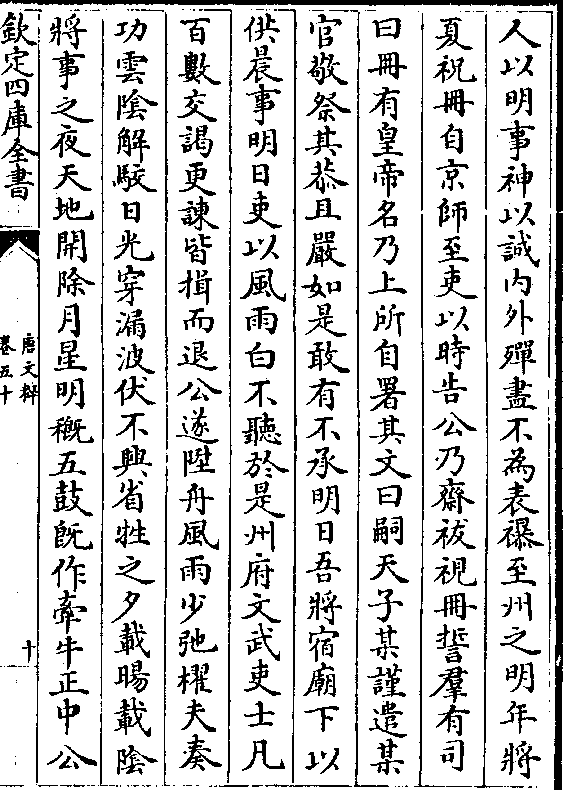 人以明事神以誠内外殫盡不為表襮至州之明年將
夏祝冊自京師至吏以時告公乃齋祓視冊誓羣有司
曰冊有皇帝名乃上所自署其文曰嗣天子某謹遣某
官敬祭其恭且嚴如是敢有不承明日吾將宿廟下以
供晨事明日吏以風雨白不聽於是州府文武吏士凡
百數交謁更諫皆揖而退公遂陞舟風雨少弛櫂夫奏
功雲陰解駁日光穿漏波伏不興省牲之夕載暘載陰
將事之夜天地開除月星明穊五鼓既作牽牛正中公
欽定四庫全書
唐文粹
卷五十
十